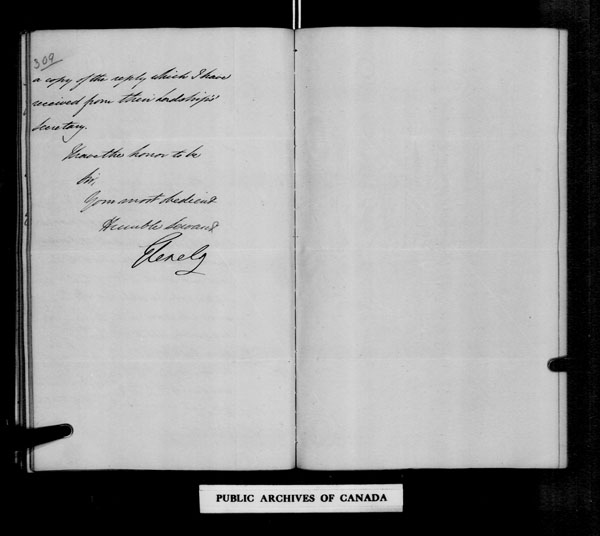 309
a copy of the reply which I have
received from their Lordships'
Secretary.
I have the honor to be
Sir,
Your most obedient
Humble Servant
Glenelg
PUBLIC ARCHIVES OF CANADA